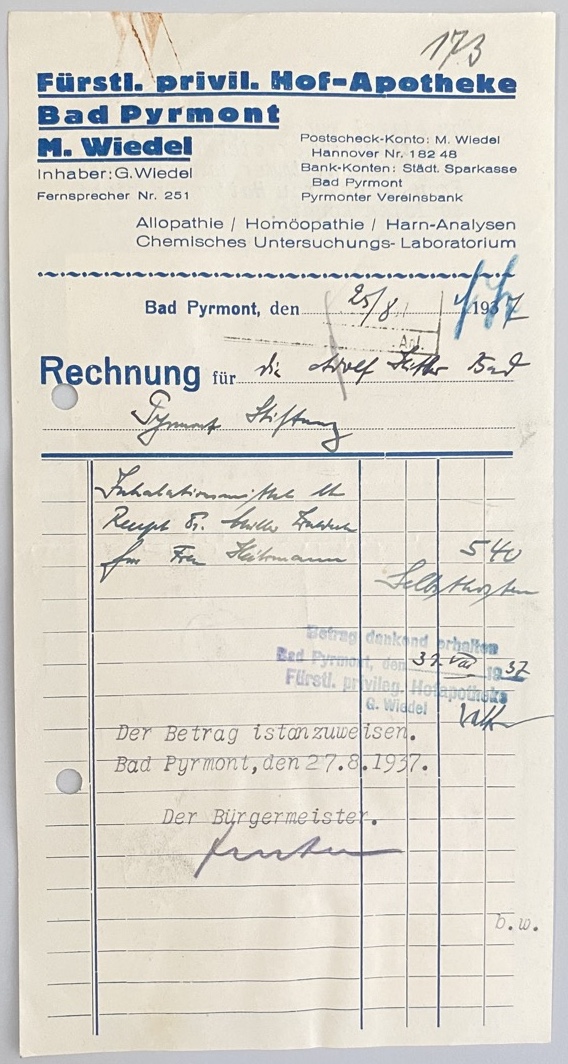 173
Fürstl. privil. Hof-Apotheke
Bad Pyrmont
M. Wiedel
Inhaber: G. Wiedel
Fernsprecher Nr. 251
Postscheck-Konto: M. Wiedel
Hannover Nr. 182 48
Bank-Konten: Städt. Sparkasse
Bad Pyrmont
Pyrmonter Vereinsbank
Allopathie / Homöopathie / Harn-Analysen
Chemisches Untersuchungs-Laboratorium
Bad Pyrmont, den 25/8. 1937
Anl.
Rechnung für die Adolf Hitler Bad
Pyrmont Stiftung
Inhalationsmittel
Rezept Dr.
für Frau 540
Selbstkosten
Betrag dankend erhalten
Bad Pyrmont, den 31. VIII 1937
Fürstl. privileg. Hofapotheke
G. Wiedel
Der Betrag istanzuweisen.
Bad Pyrmont, den 27.8.1937.
Der Bürgermeister.
b.w.